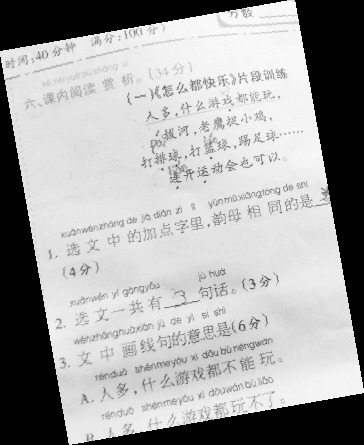 时间:40分钟 满分:100分)
分数
kè nèi yuè dú shǎng xī
六、课内阅读赏析。(34分)
(一)《怎么都快乐》片段训练
人多,什么游戏都能玩,
拔河,老鹰捉小鸡,
打排球,打篮球,踢足球……
连开运动会也可以。
xuǎnwénzhōng de jiā diǎn zì lǐ yùnmǔxiāngtóng de shì
1. 选文中的加点字里,韵母相同的是
(4分)
xuǎnwén yí gòngyǒu jù huà
2. 选文一共有 3 句话。(3分)
wénzhōnghuàxiàn jù de yì si shì
3. 文中画线句的意思是(6分)
rénduō shénmeyóu xì dōu bù néngwán
A. 人多,什么游戏都不能玩。
rénduō shénmeyóu xì dōuwán bù liǎo
B. 人多,什么游戏都玩不了。